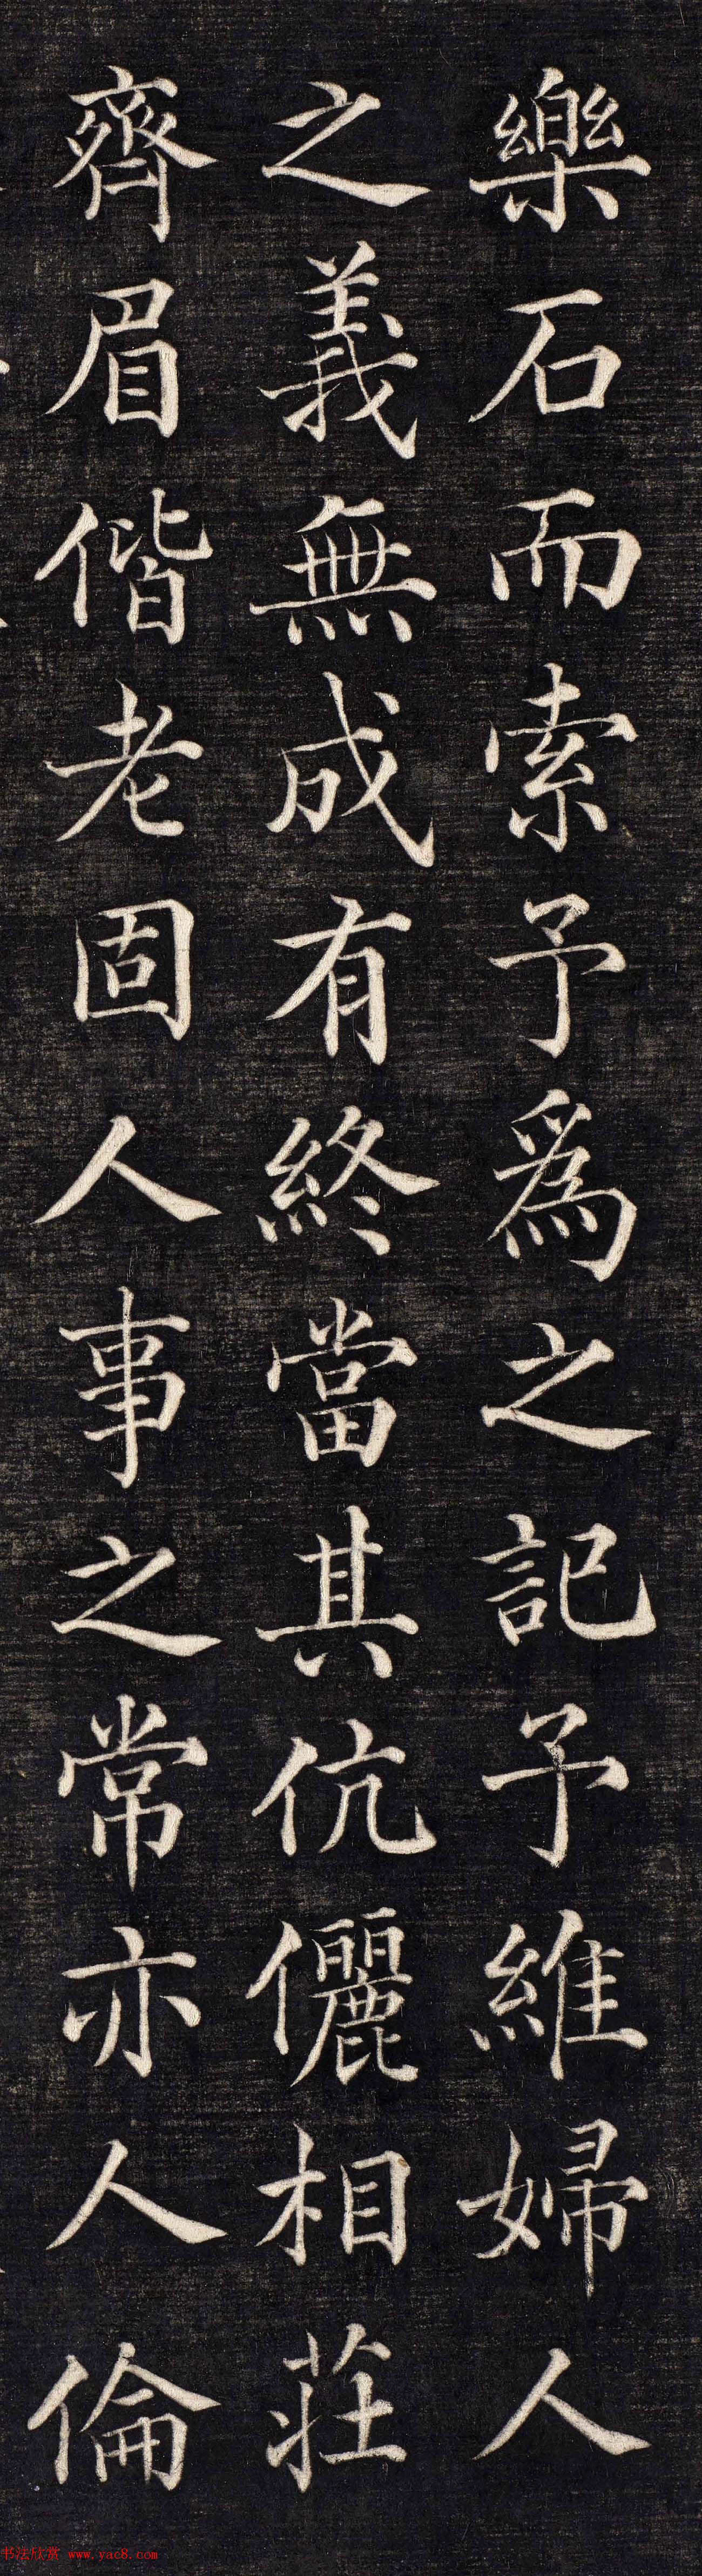 樂石而索予爲之記予維婦人
之義無成有終當其伉儷相莊
齊眉偕老固人事之常亦人倫
书法欣赏 www.yac8.com